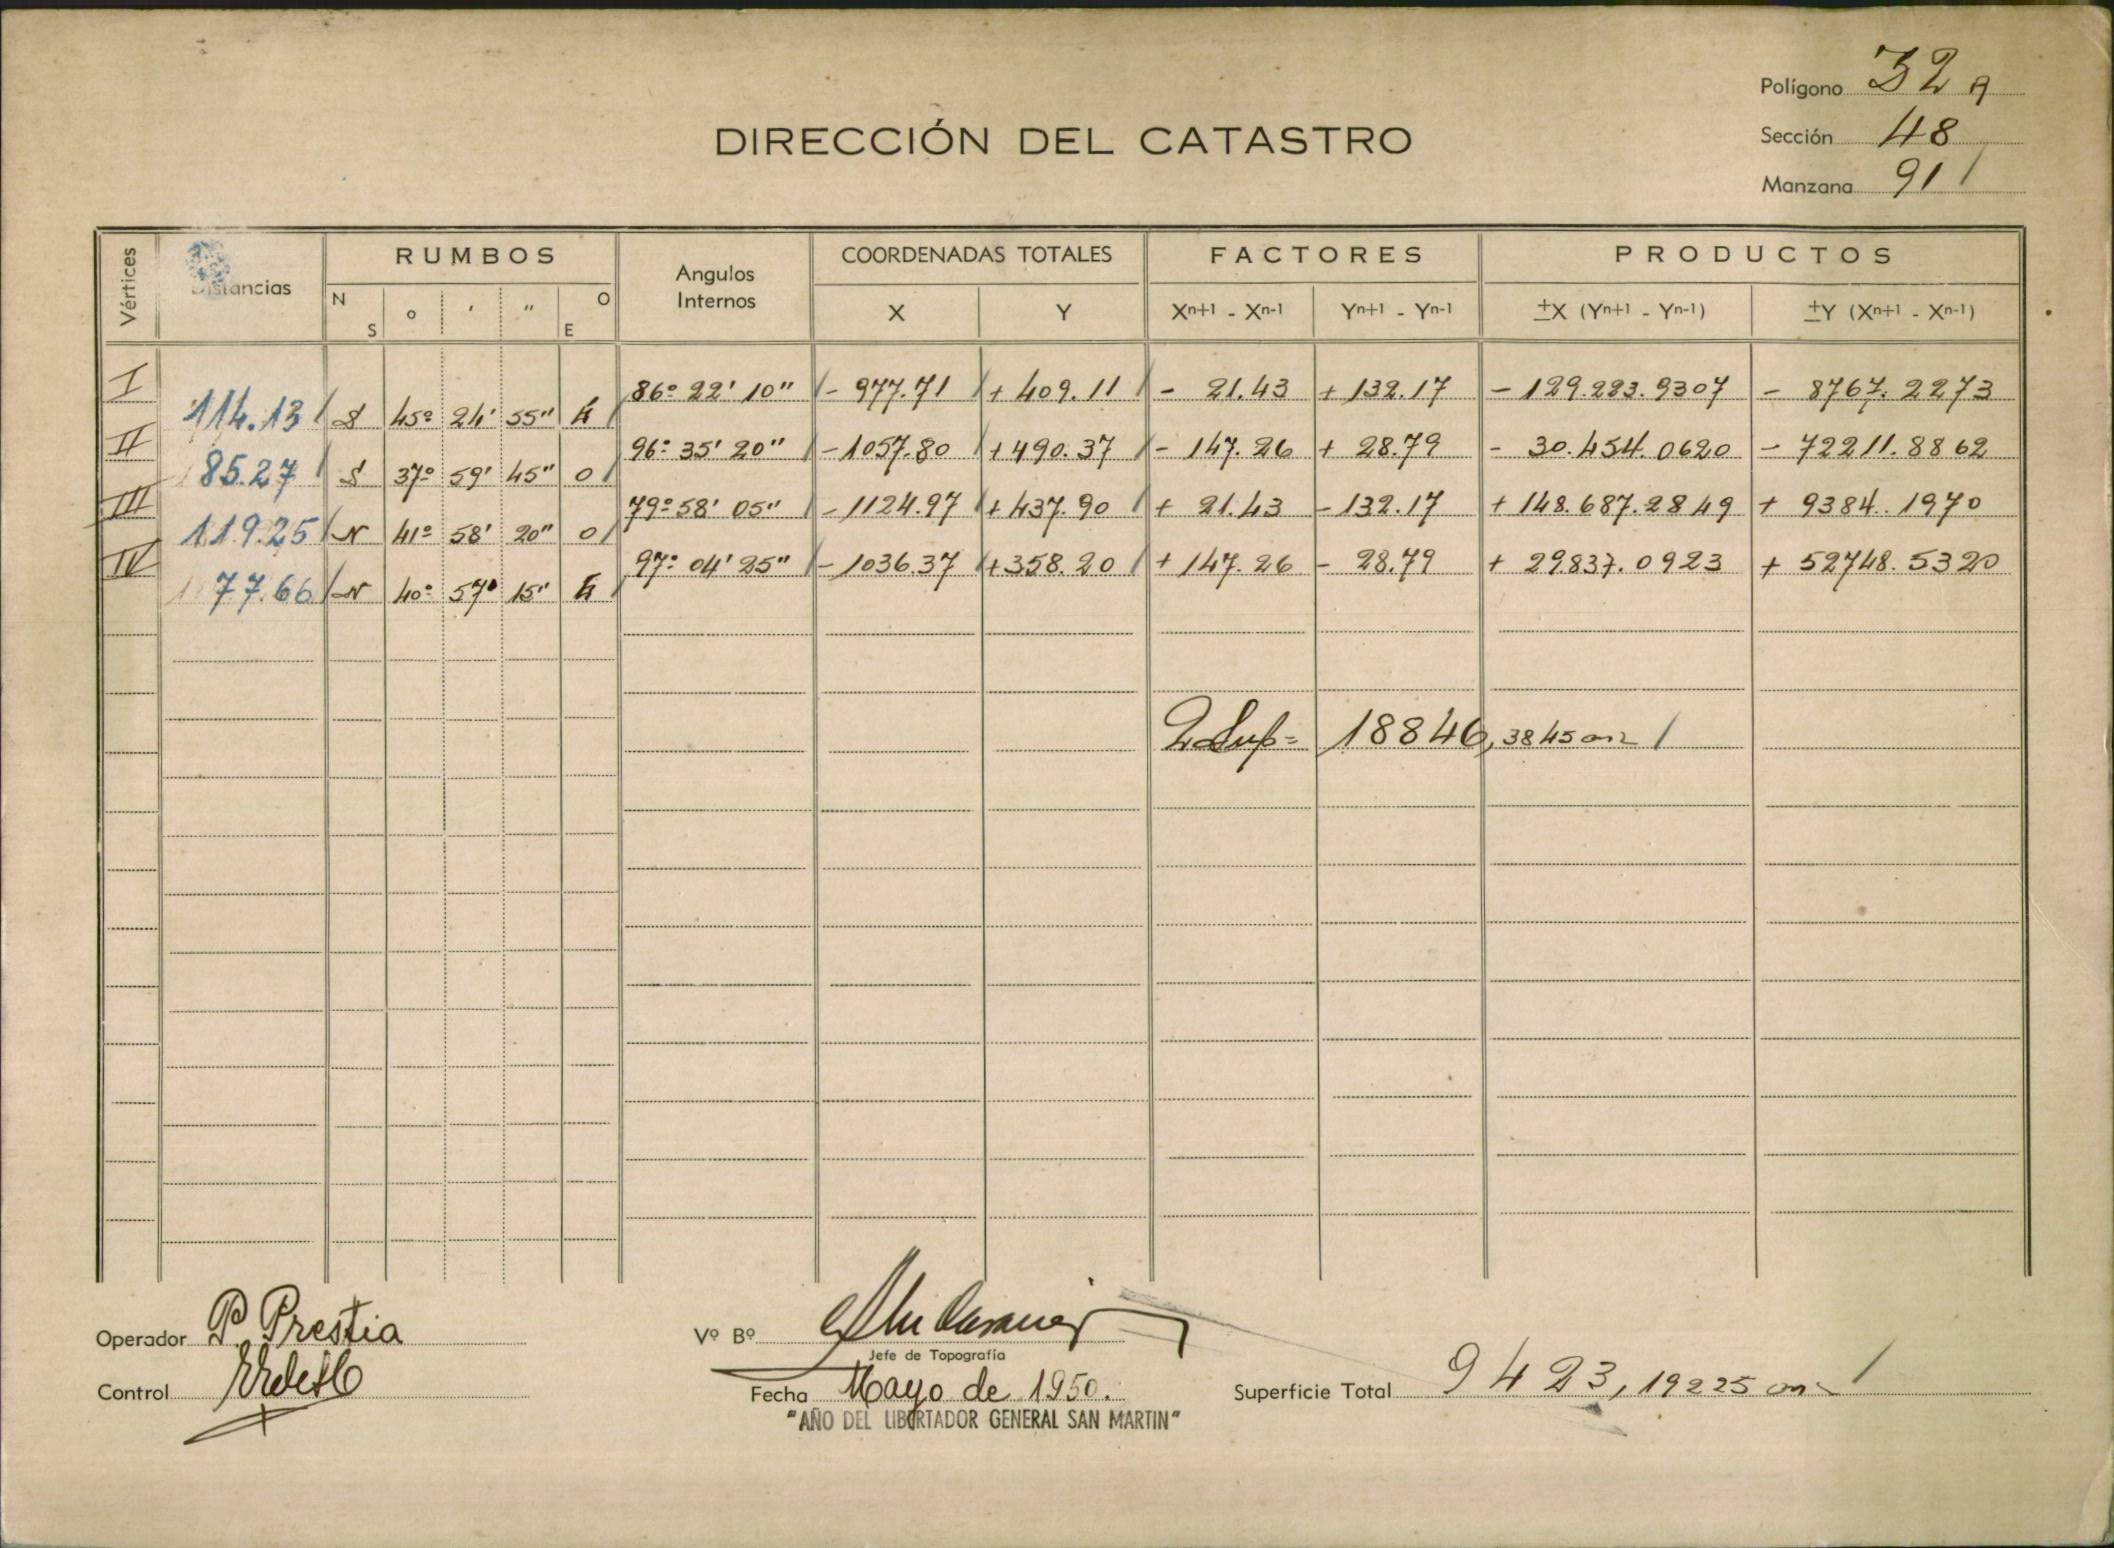 Polígono 32 A
DIRECCIÓN DEL CATASTRO
Sección 48
Manzana 91
Vértices
Distancias
RUMBOS
N S
o ' "
O E
Angulos Internos
COORDENADAS TOTALES
X Y
FACTORES
Xn+1 - Xn-1 Yn+1 - Yn-1
PRODUCTOS
±X (Yn+1 - Yn-1) ±Y (Xn+1 - Xn-1)
I 86º 22' 10" - 977.71 + 409.11 - 21.43 + 132.17 - 129.223.9307 - 8767.2273
114.13 S 45º 24' 55" E
II 96º 35' 20" - 1057.80 + 490.37 - 147.26 + 28.79 - 30.454.0620 - 72211.8862
85.27 S 37º 59' 45" O
III 79º 58' 05" - 1124.97 + 437.90 + 21.43 - 132.17 + 148.687.2849 + 9384.1970
119.25 N 41º 58' 20" O
IV 97º 04' 25" - 1036.37 + 358.20 + 147.26 - 28.79 + 29.837.0923 + 52748.5320
77.66 N 40º 57' 15" E
2 Sup = 18846,3845 m2
Operador P. Prestia
Vº Bº
Jefe de Topografía
Control
Fecha Mayo de 1950.
Superficie Total 9423,19225 m2
"AÑO DEL LIBERTADOR GENERAL SAN MARTIN"